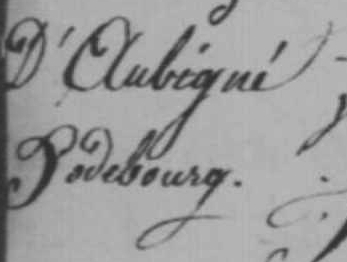 D'Aubigné
Podebourg.